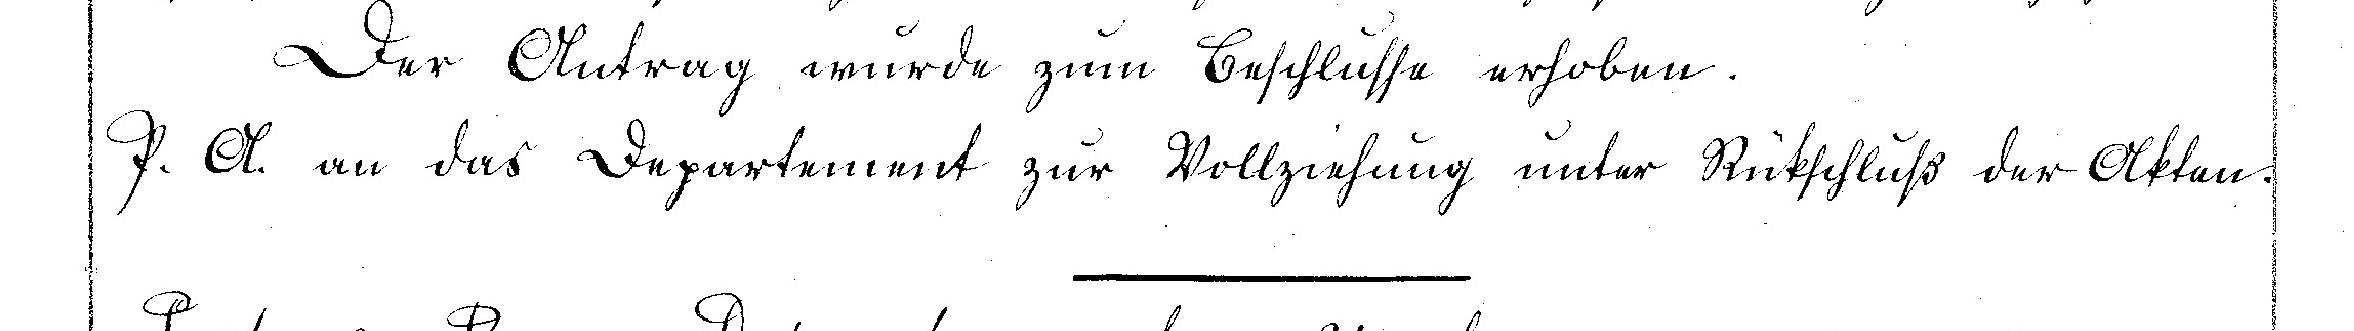 Der Antrag wurde zum Beschlusse erhoben.
P. A. an das Departement zur Vollziehung unter Rükschluß der Akten.